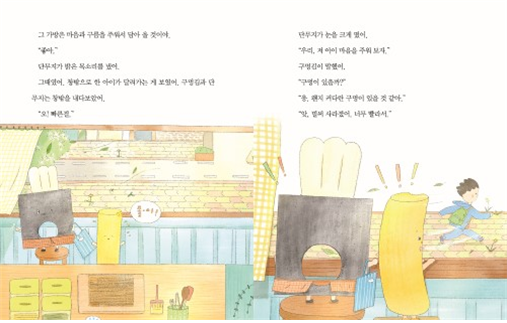 그 가방은 마음과 구름을 주워서 담아 올 것이야.
"좋아."
단무지가 밝은 목소리를 냈어.
그때였어. 창밖으로 한 아이가 달려가는 게 보였어. 구멍김과 단
무지는 창밖을 내다보았어.
"오! 빠른걸."
단무지가 눈을 크게 떴어.
"우리, 저 아이 마음을 주워 보자."
구멍김이 말했어.
"구멍이 있을까?"
"응, 왠지 커다란 구멍이 있을 것 같아."
"앗, 벌써 사라졌어. 너무 빨라서."